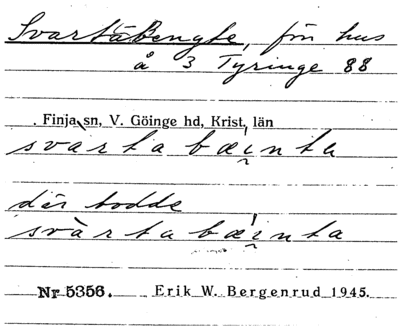 Svartabengte, fın hus
å 3 Tyringe 88
Finja sn, V. Göinge hd, Krist. län
svàrta bæi̯nta
där bodde
svàrta bæi̯nta
Nr 5356. Erik W. Bergenrud 1945.